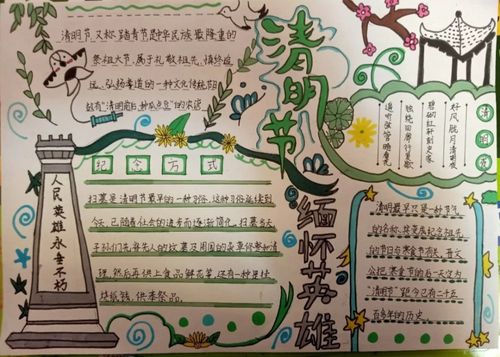 清明节,又称踏青节,是中华民族最隆重的
祭祖大节,属于礼敬祖先、慎终追
远、弘扬孝道的一种文化传统节
故有"清明前后,种瓜点豆"的农谚
清明节
清明节
好风胧月清明夜
碧砌红轩刺史家
独绕回廊行复歇
遥听弦管暗看花
人民英雄永垂不朽
纪念方式
扫墓是清明节最早的一种习俗,这种习俗延续到
今天,已随着社会的进步而逐渐简化,扫墓当天
子孙们先将先人的坟墓及周围的杂草修整和清
理,然后再供上食品鲜花等,还有一种是
烧纸钱,供奉祭品。
缅怀英雄
清明最早只是一种节气
的名称,其变成纪念祖先
的节日与寒食节有关,晋文
公把寒食节的后一天定为
"清明节",距今已有一千五
百多年的历史。